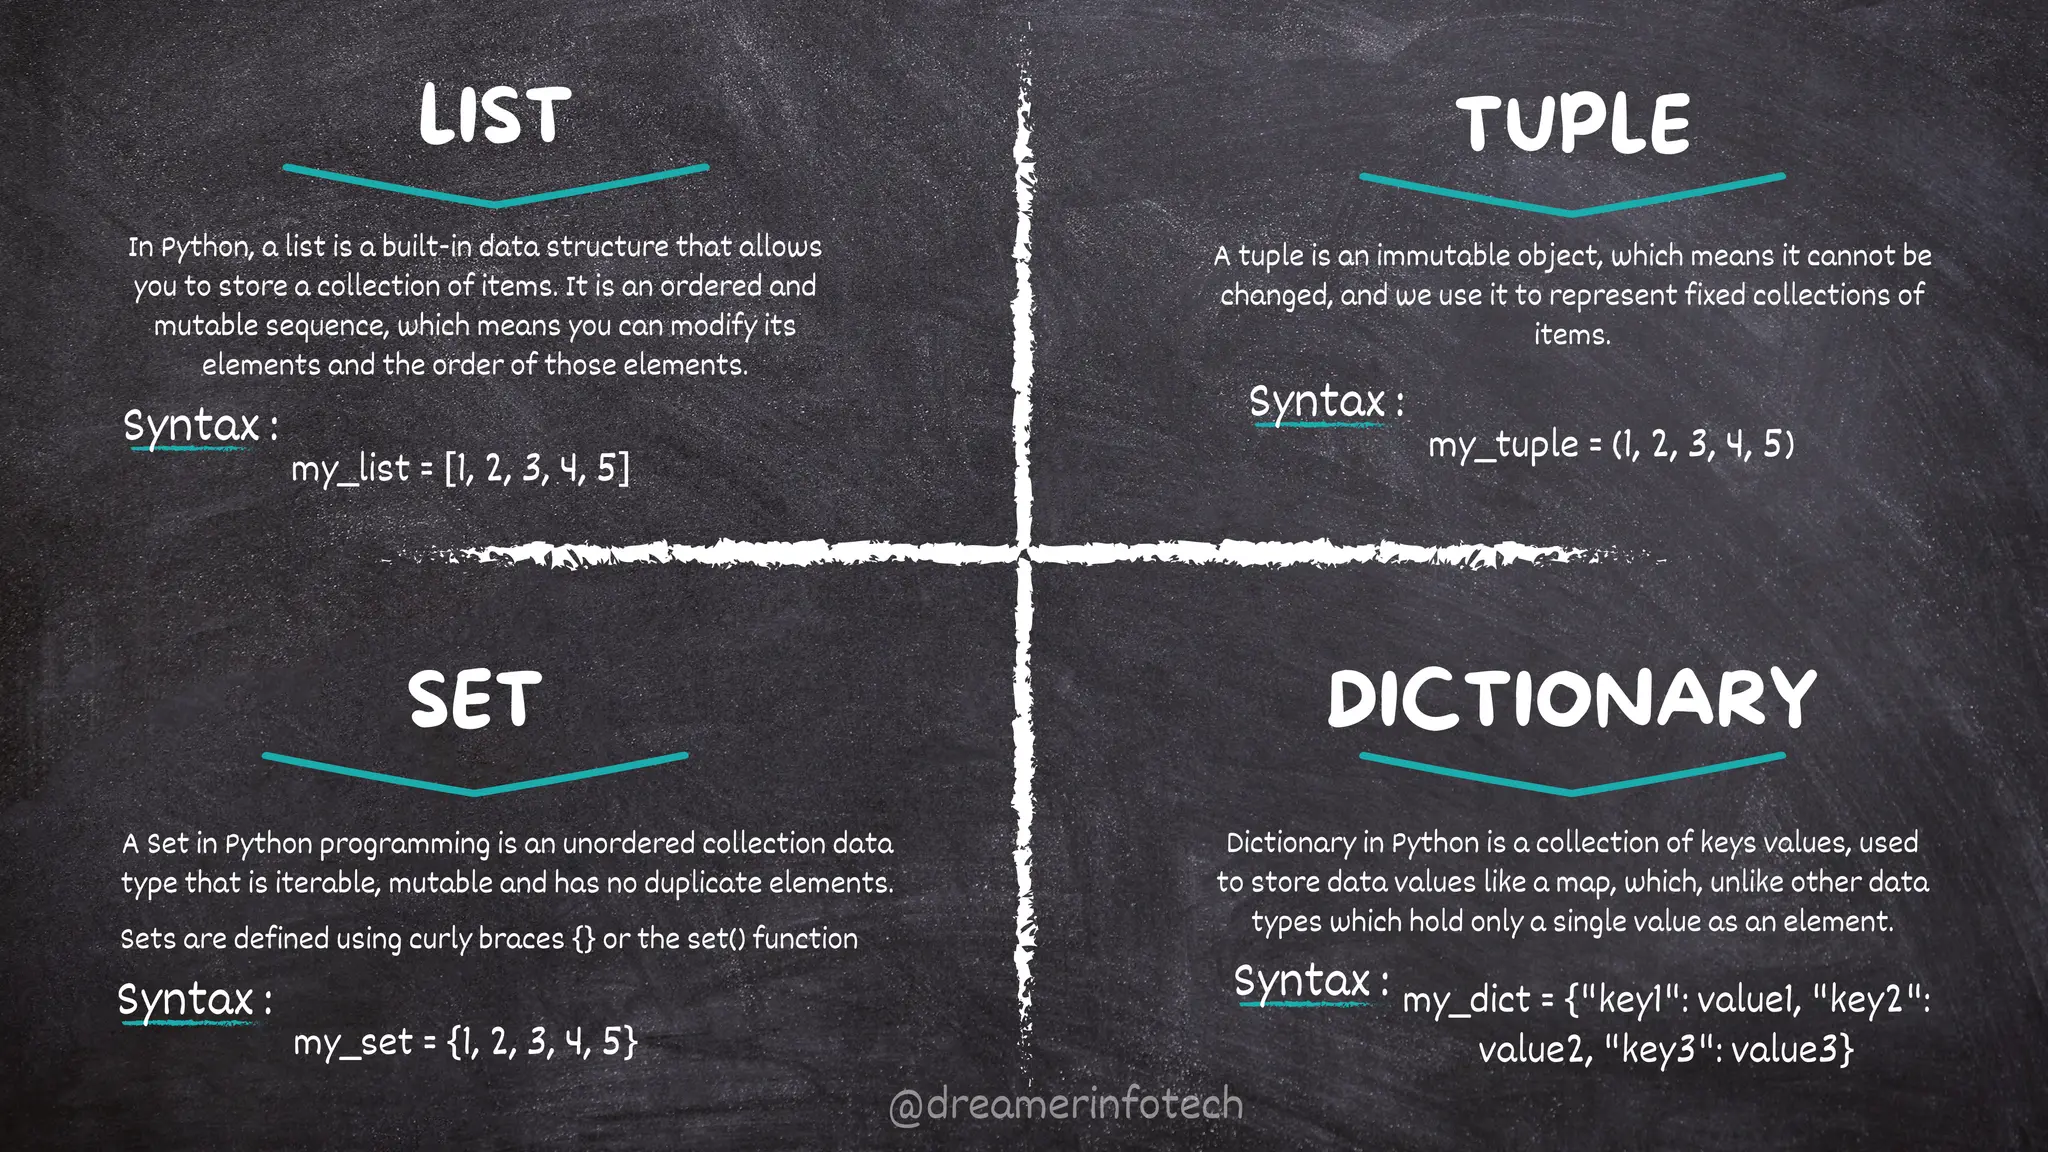 LIST
In Python, a list is a built-in data structure that allows
you to store a collection of items. It is an ordered and
mutable sequence, which means you can modify its
elements and the order of those elements.
Syntax :
my_list = [1, 2, 3, 4, 5]
TUPLE
A tuple is an immutable object, which means it cannot be
changed, and we use it to represent fixed collections of
items.
Syntax :
my_tuple = (1, 2, 3, 4, 5)
SET
A Set in Python programming is an unordered collection data
type that is iterable, mutable and has no duplicate elements.
Sets are defined using curly braces {} or the set() function
Syntax :
my_set = {1, 2, 3, 4, 5}
DICTIONARY
Dictionary in Python is a collection of keys values, used
to store data values like a map, which, unlike other data
types which hold only a single value as an element.
Syntax :
my_dict = {"key1": value1, "key2":
value2, "key3": value3}
@dreamerinfotech